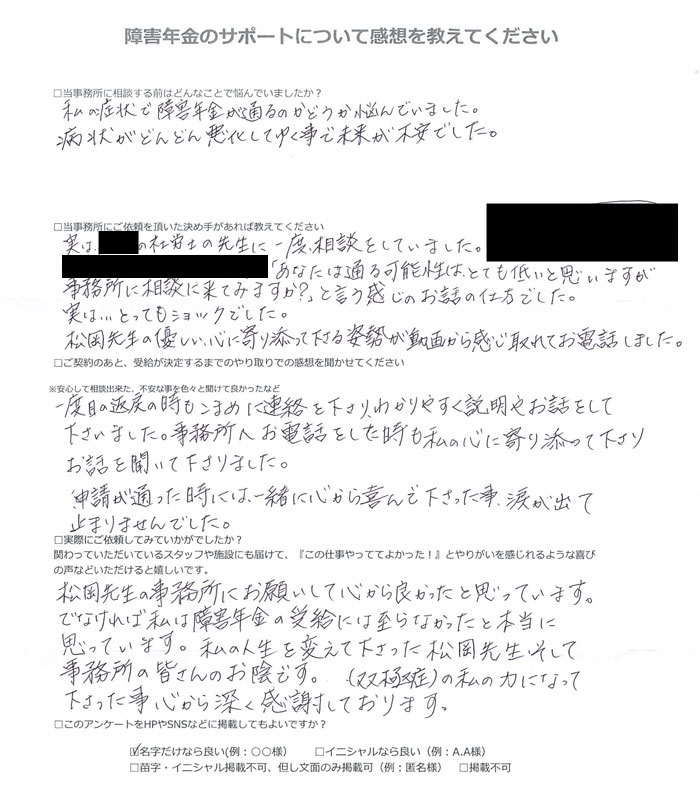 障害年金のサポートについて感想を教えてください
□当事務所に相談する前はどんなことで悩んでいましたか？
私の症状で障害年金が通るのかどうか悩んでいました。
病状がどんどん悪化してゆく事で未来が不安でした。
□当事務所にご依頼を頂いた決め手があれば教えてください
実は、の社労士の先生に一度、相談をしていました。
「あなたは通る可能性は、とても低いと思いますが
事務所に相談に来てみますか?」と言う感じのお話の仕方でした。
実は…とってもショックでした。
松岡先生の優しい、心に寄り添って下さる姿勢が動画から感じ取れてお電話しました。
□ご契約のあと、受給が決定するまでのやり取りでの感想を聞かせてください
※安心して相談出来た、不安な事を色々と聞けて良かったなど
一度目の返戻の時もこまめに連絡を下さり、わかりやすく説明やお話をして
下さいました。事務所へお電話をした時も私の心に寄り添って下さり
お話を聞いて下さりました。
申請が通った時には、一緒に心から喜んで下さった事、涙が出て
止まりませんでした。
□実際にご依頼してみていかがでしたか？
関わっていただいているスタッフや施設にも届けて、『この仕事やっててよかった！』とやりがいを感じれるような喜び
の声などいただけると嬉しいです。
松岡先生の事務所にお願いして心から良かったと思っています。
でなければ私は障害年金の受給には至らなかったと本当に
思っています。私の人生を変えて下さった松岡先生、そして
事務所の皆さんのお陰です。(双極症)の私の力になって
下さった事心から深く感謝しております。
□このアンケートをHPやSNSなどに掲載してもよいですか？
☑名字だけなら良い(例：〇〇様) □イニシャルなら良い（例：A.A様）
□苗字・イニシャル掲載不可、但し文面のみ掲載可（例：匿名様） □掲載不可